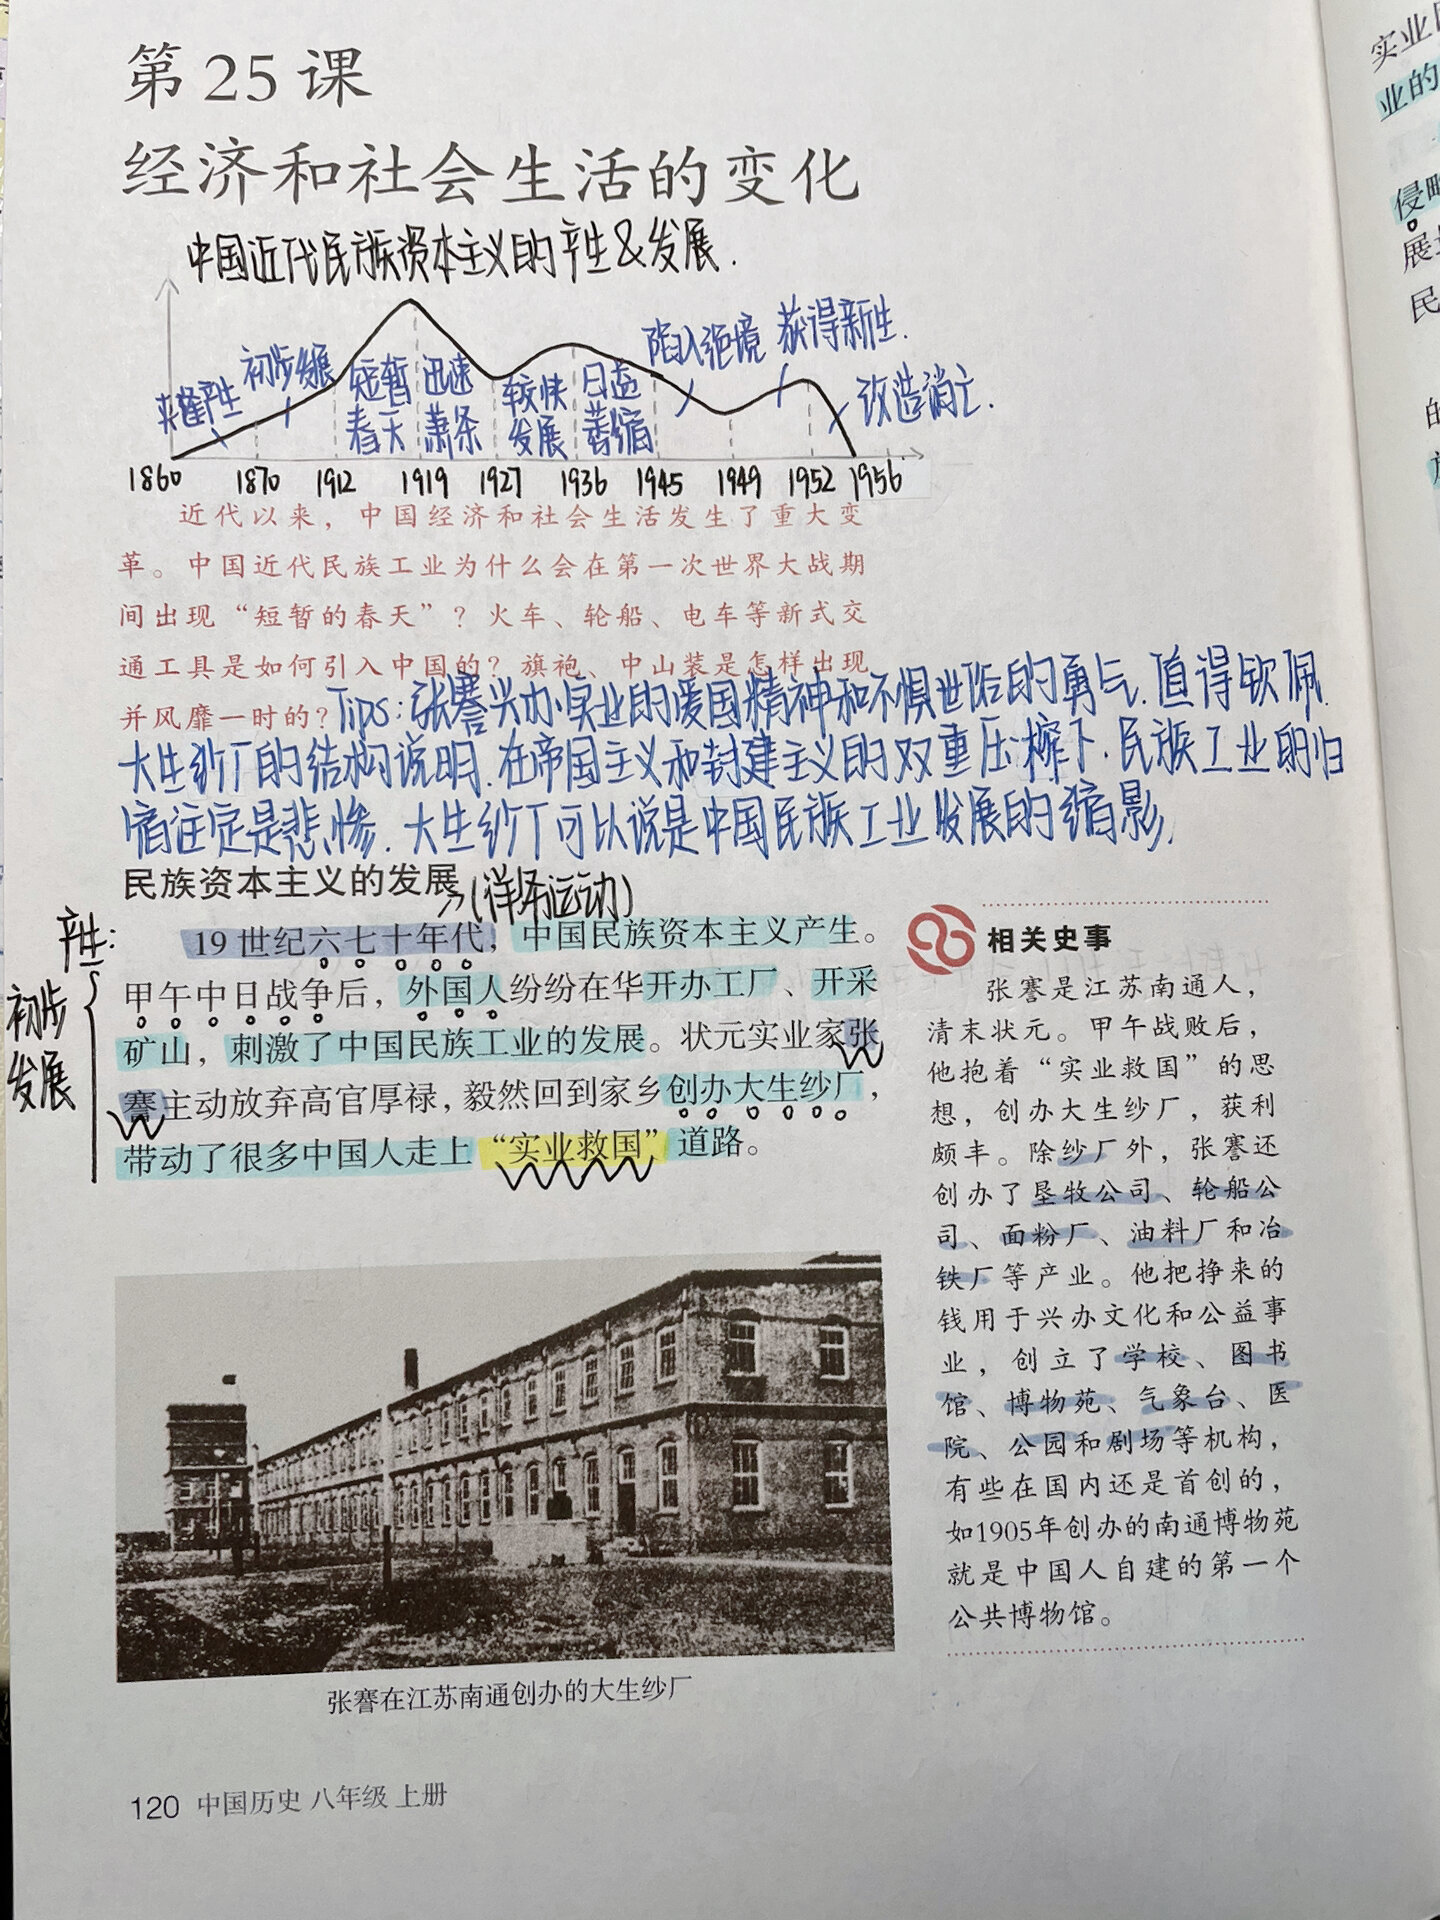 第25课
经济和社会生活的变化
中国近代民族资本主义的产生&发展.
夹缝产生
初步发展
短暂
春天
迅速
萧条
较快
发展
日益
萎缩
陷入绝境
获得新生.
改造消亡.
1860 1870 1912 1919 1927 1936 1945 1949 1952 1956
近代以来，中国经济和社会生活发生了重大变
革。中国近代民族工业为什么会在第一次世界大战期
间出现“短暂的春天”？火车、轮船、电车等新式交
通工具是如何引入中国的？旗袍、中山装是怎样出现
并风靡一时的？
Tips:张謇兴办实业的爱国精神和不惧世俗的勇气.值得钦佩.
大生纱厂的结构说明.在帝国主义和封建主义的双重压榨下.民族工业的归
宿注定是悲惨.大生纱厂可以说是中国民族工业发展的缩影.
民族资本主义的发展
(洋务运动)
产生:
初步
发展
19世纪六七十年代，中国民族资本主义产生。
甲午中日战争后，外国人纷纷在华开办工厂、开采
矿山，刺激了中国民族工业的发展。状元实业家张
謇主动放弃高官厚禄，毅然回到家乡创办大生纱厂，
带动了很多中国人走上“实业救国”道路。
相关史事
张謇是江苏南通人，
清末状元。甲午战败后，
他抱着“实业救国”的思
想，创办大生纱厂，获利
颇丰。除纱厂外，张謇还
创办了垦牧公司、轮船公
司、面粉厂、油料厂和冶
铁厂等产业。他把挣来的
钱用于兴办文化和公益事
业，创立了学校、图书
馆、博物苑、气象台、医
院、公园和剧场等机构，
有些在国内还是首创的，
如1905年创办的南通博物苑
就是中国人自建的第一个
公共博物馆。
张謇在江苏南通创办的大生纱厂
120 中国历史 八年级 上册
实业
业的
侵略
展
民
的